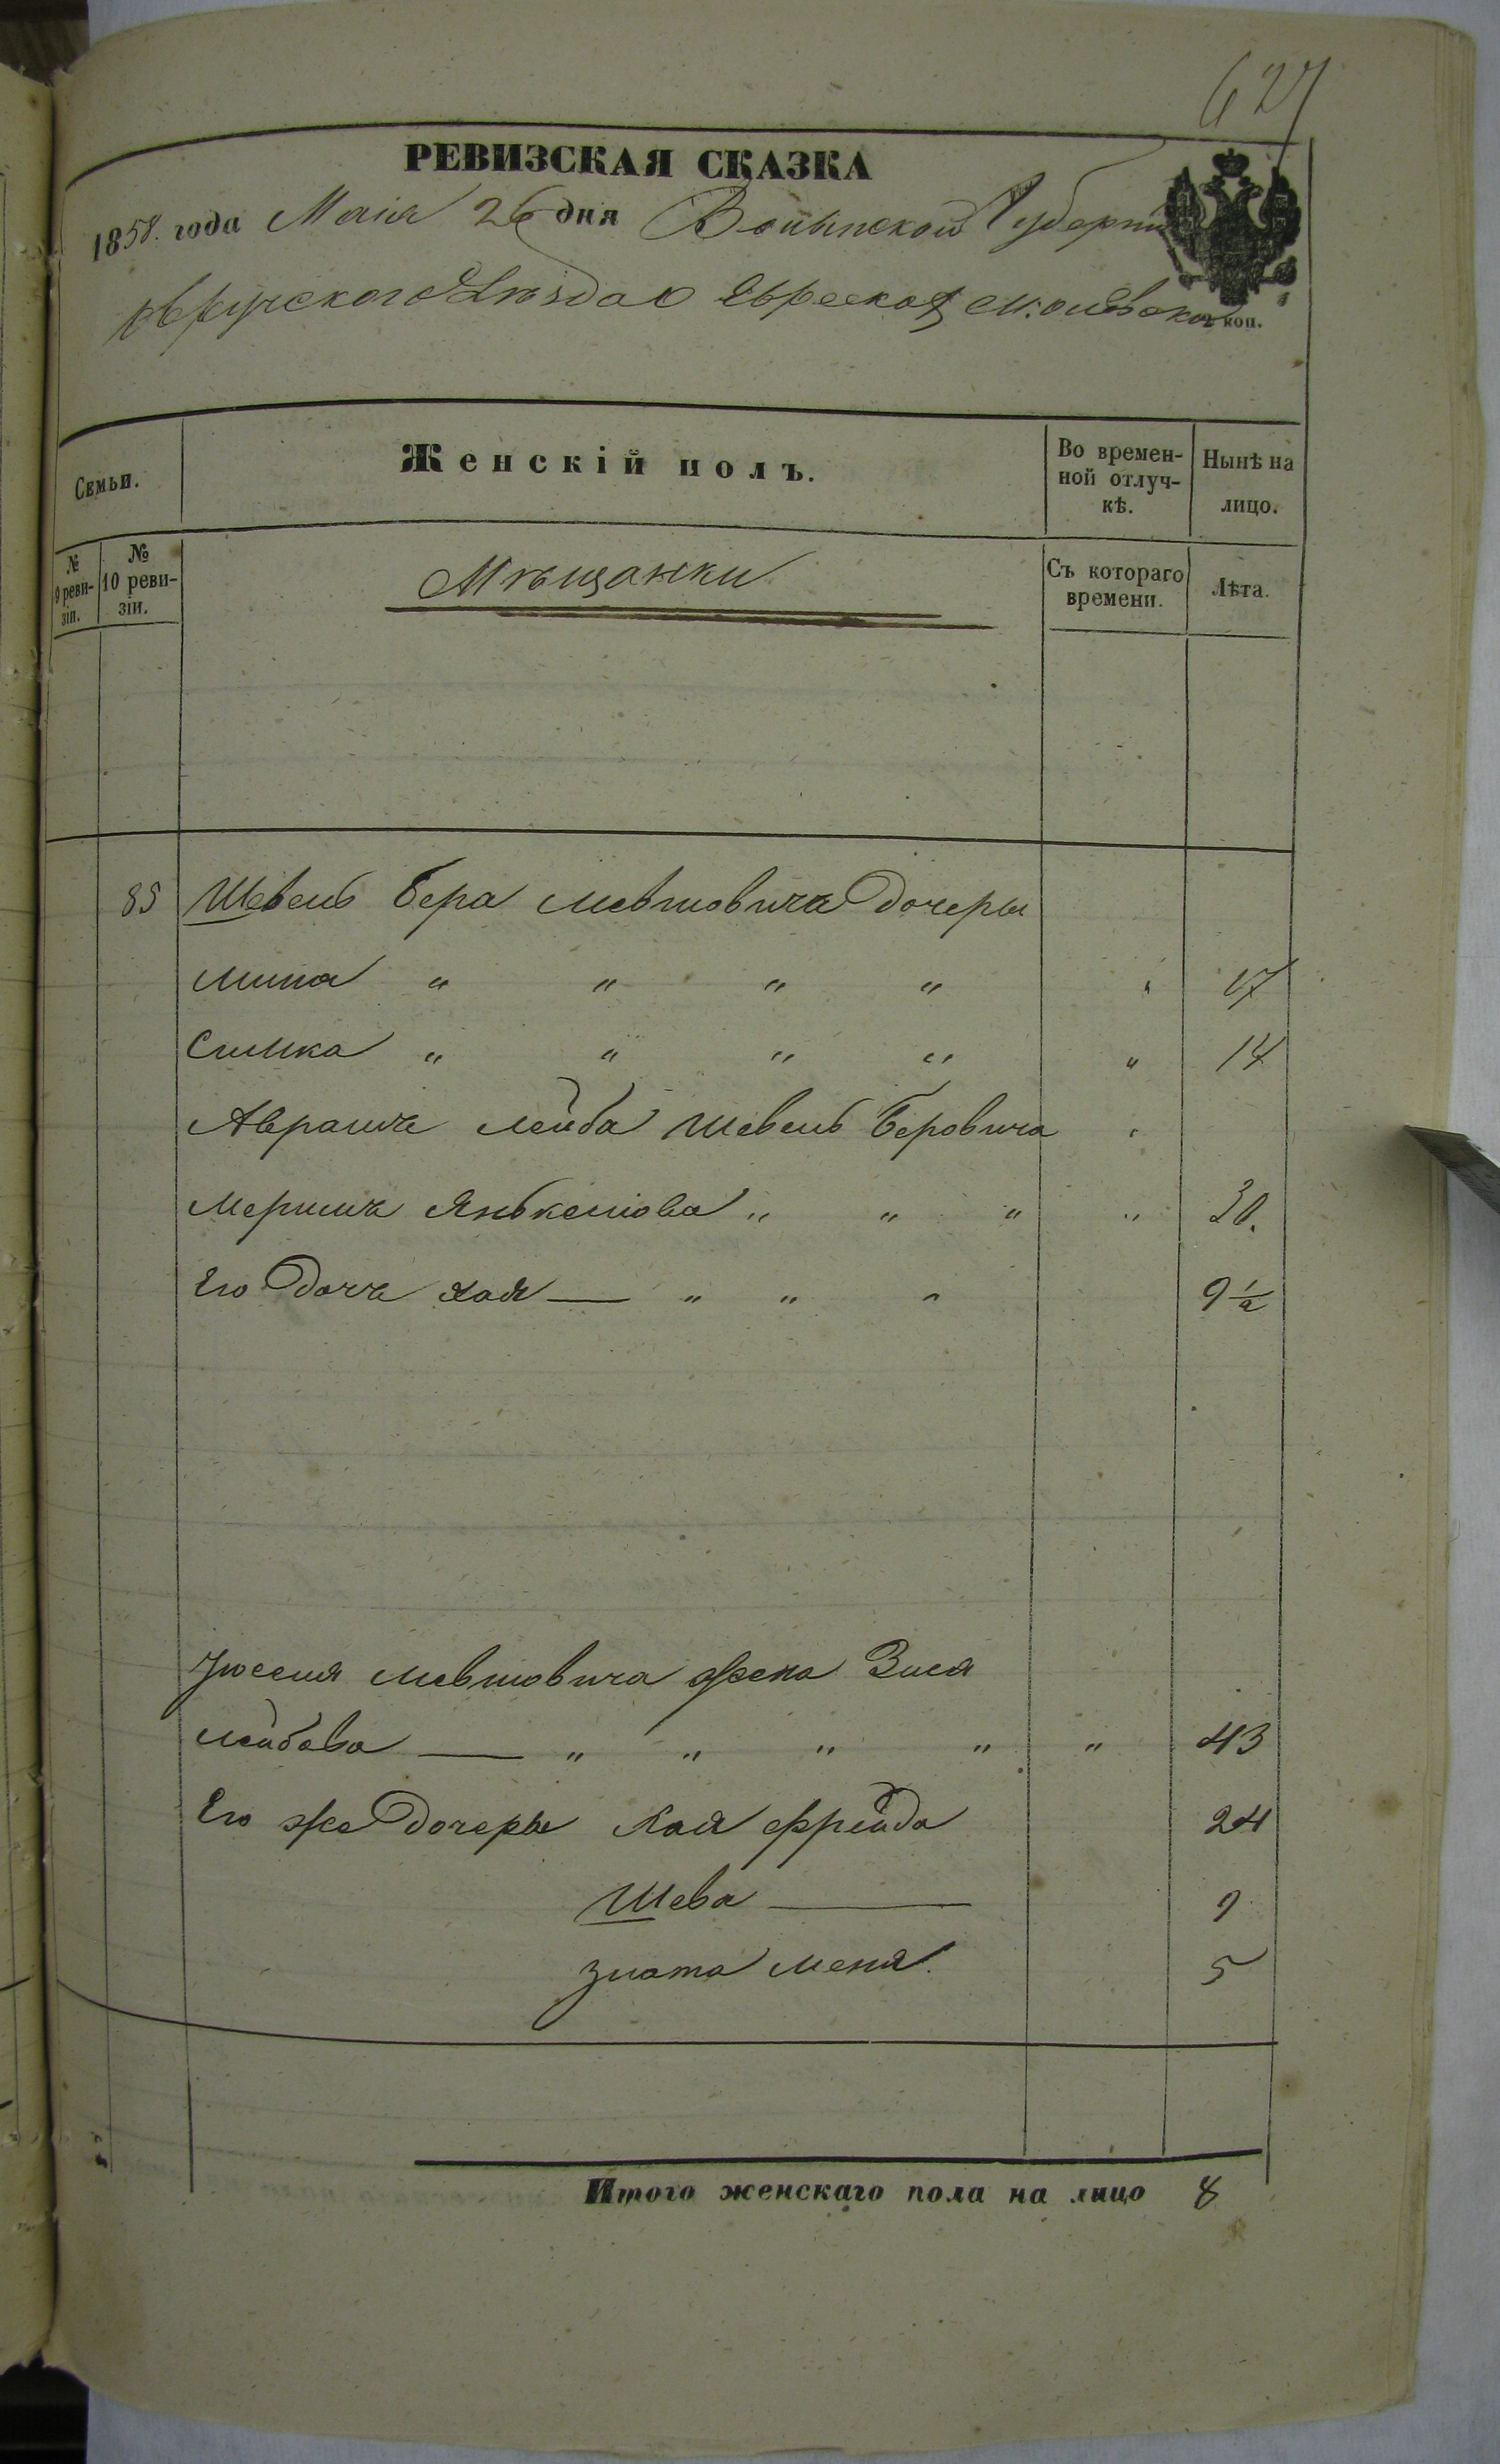 627
РЕВИЗСКАЯ СКАЗКА
1858. года Маія 26 дня Волынской Губерніи
Овручского Уезда о Евреехъ м. Олевска
коп.
Семьи.
Женскій полъ.
Во времен-
ной отлуч-
кѣ.
Нынѣ на
лицо.
№
9 реви-
зіи.
№
10 реви-
зіи.
Мѣщанки
Съ котораго
времени.
Лѣта.
85 Шевель Бера Мевшовича дочеры
" " " " " 17
Симка " " " " " 14
Аврамъ Лейба Шевель Беровича "
Янькелiова " " " " 30.
Его дочь Хая — " " " 9½
Мевшовича жена Зися
Лейбова — " " " " " 43
Его же дочеры Хая Фрейда 24
Шева — 9
Злата Меня. 5
Итого женскаго пола на лицо 8